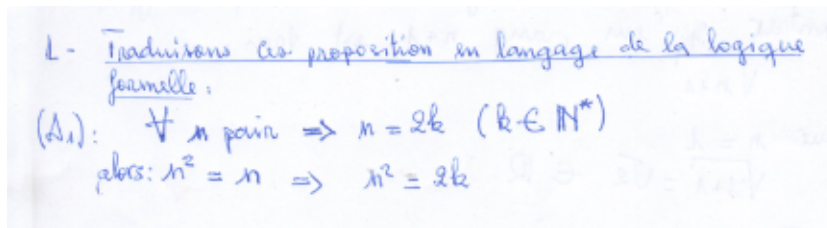 1 - Traduisons ces proposition en langage de la logique
formelle.
(A1): ∀ n pair ⇒ n = 2k (k ∈ ℕ*)
alors: n² = n ⇒ n² = 2k